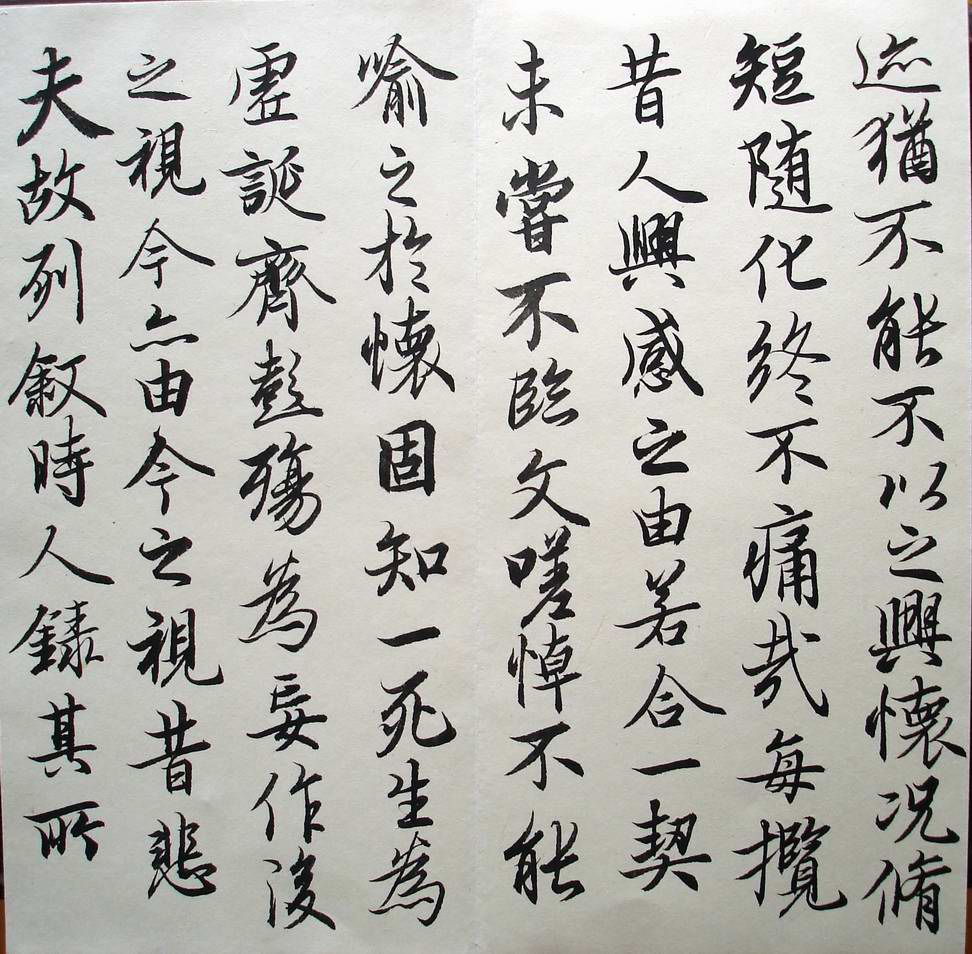 迹猶不能不以之興懷况脩
短隨化終不痛哉每攬
昔人興感之由若合一契
未嘗不臨文嗟悼不能
喻之於懷固知一死生為
虛誕齊彭殤為妄作後
之視今亦由今之視昔悲
夫故列敘時人錄其所